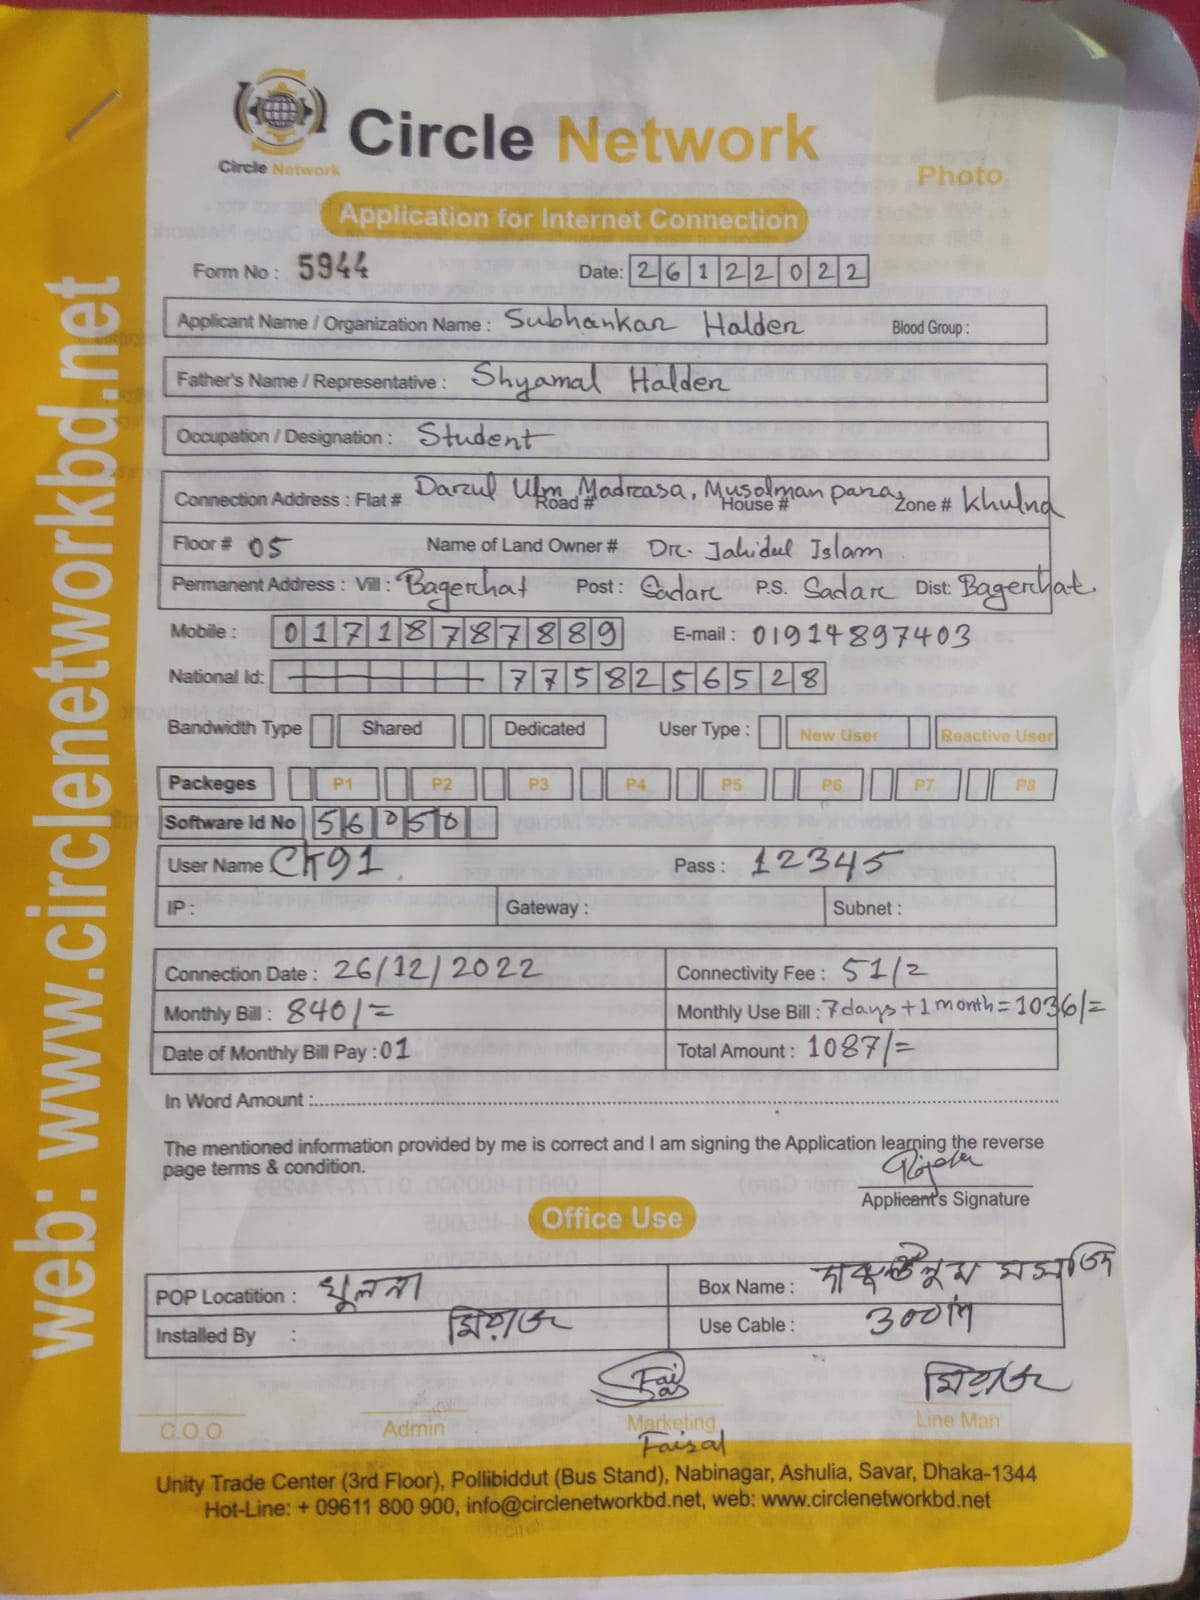 Circle Network
Circle Network
Photo
Application for Internet Connection
Form No : 5944 Date: 26122022
Applicant Name / Organization Name : Subhankar Halder Blood Group :
Father's Name / Representative : Shyamal Halder
Occupation / Designation : Student
Connection Address : Flat # Darul Ulm Madrasa, Musolman para, Road # House # Zone # Khulna
Floor # 05 Name of Land Owner # Dr. Jahidul Islam
Permanent Address : Vill : Bagerhat Post : Sadar P.S. Sadar Dist: Bagerhat.
Mobile : 01718787889 E-mail : 01914897403
National Id: 7758256528
Bandwidth Type Shared Dedicated User Type : New User Reactive User
Packeges P1 P2 P3 P4 P5 P6 P7 P8
Software Id No 56050
User Name Pass : 12345
IP : Gateway : Subnet :
Connection Date : 26/12/2022 Connectivity Fee : 51/=
Monthly Bill : 840/= Monthly Use Bill : 7 days + 1 month = 1036/=
Date of Monthly Bill Pay : 01 Total Amount : 1087/=
In Word Amount :
The mentioned information provided by me is correct and I am signing the Application learning the reverse
page terms & condition.
Applicant's Signature
Office Use
POP Locatition : খুলনা Box Name :
Installed By : মিরাজ Use Cable : 300m
মিরাজ
C.O.O Admin Marketing Line Man
Faisal
Unity Trade Center (3rd Floor), Pollibiddut (Bus Stand), Nabinagar, Ashulia, Savar, Dhaka-1344
Hot-Line: + 09611 800 900, info@circlenetworkbd.net, web: www.circlenetworkbd.net
web: www.circlenetworkbd.net